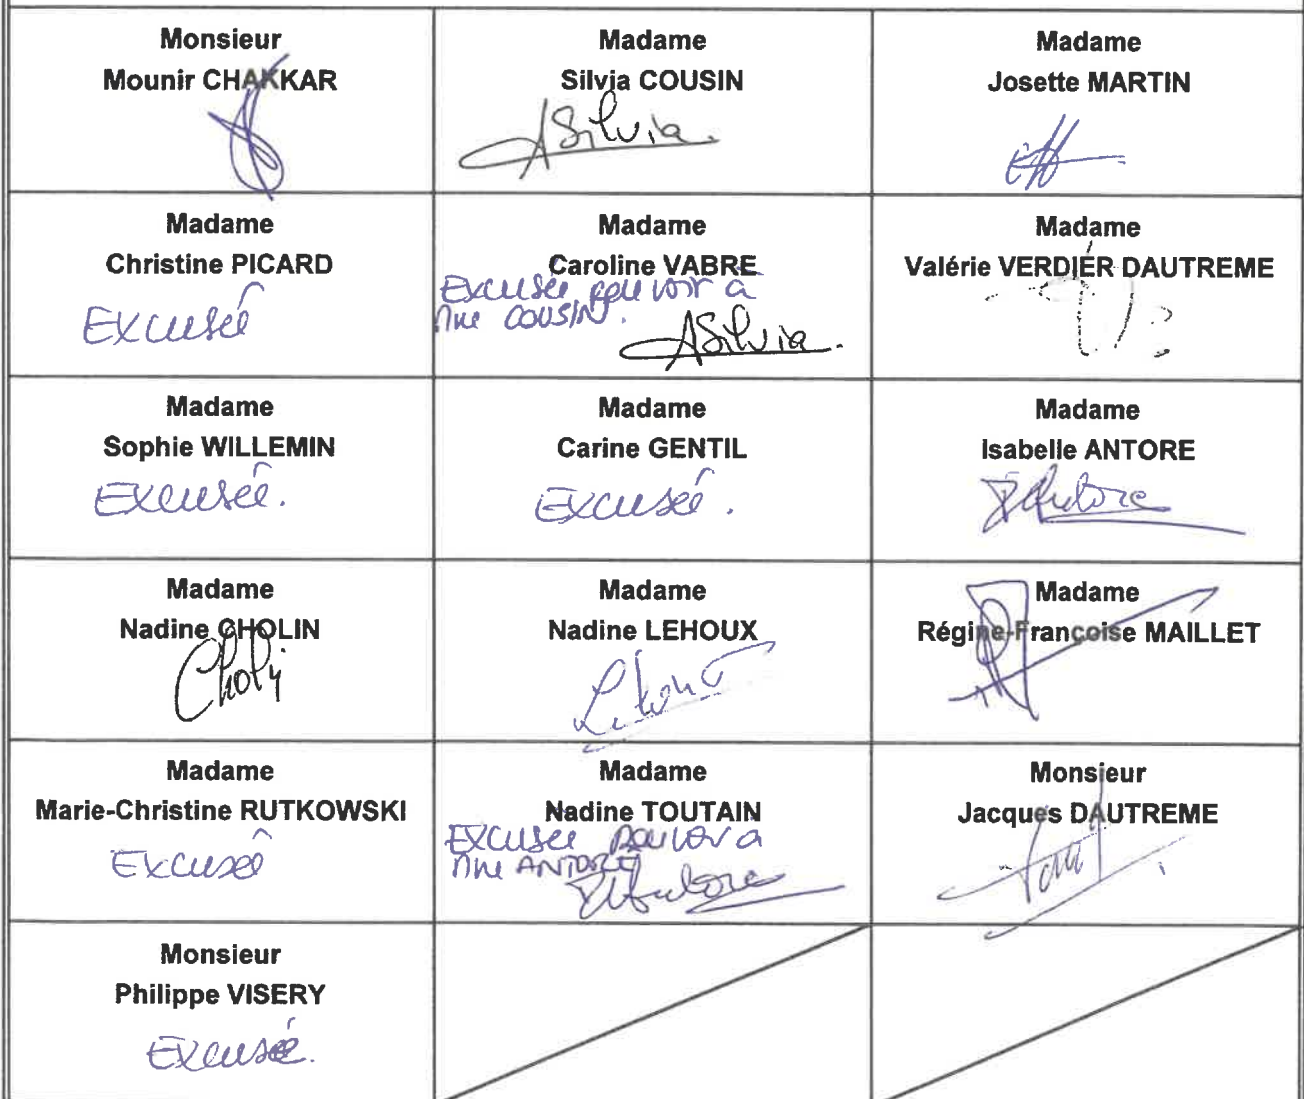 Monsieur
Mounir CHAKKAR
Madame
Silvia COUSIN
Silvia
Madame
Josette MARTIN
Madame
Christine PICARD
Excusée
Madame
Caroline VABRE
Excusée pouvoir à
Mme COUSIN.
Silvia
Madame
Valérie VERDIER DAUTREME
Madame
Sophie WILLEMIN
Excusée.
Madame
Carine GENTIL
Excusée.
Madame
Isabelle ANTORE
Antore
Madame
Nadine CHOLIN
Choli
Madame
Nadine LEHOUX
Lehoux
Madame
Régine-Françoise MAILLET
Madame
Marie-Christine RUTKOWSKI
Excusé
Madame
Nadine TOUTAIN
Excusée pouvoir a
Mme ANTORE
Antore
Monsieur
Jacques DAUTREME
Monsieur
Philippe VISERY
Excusé.